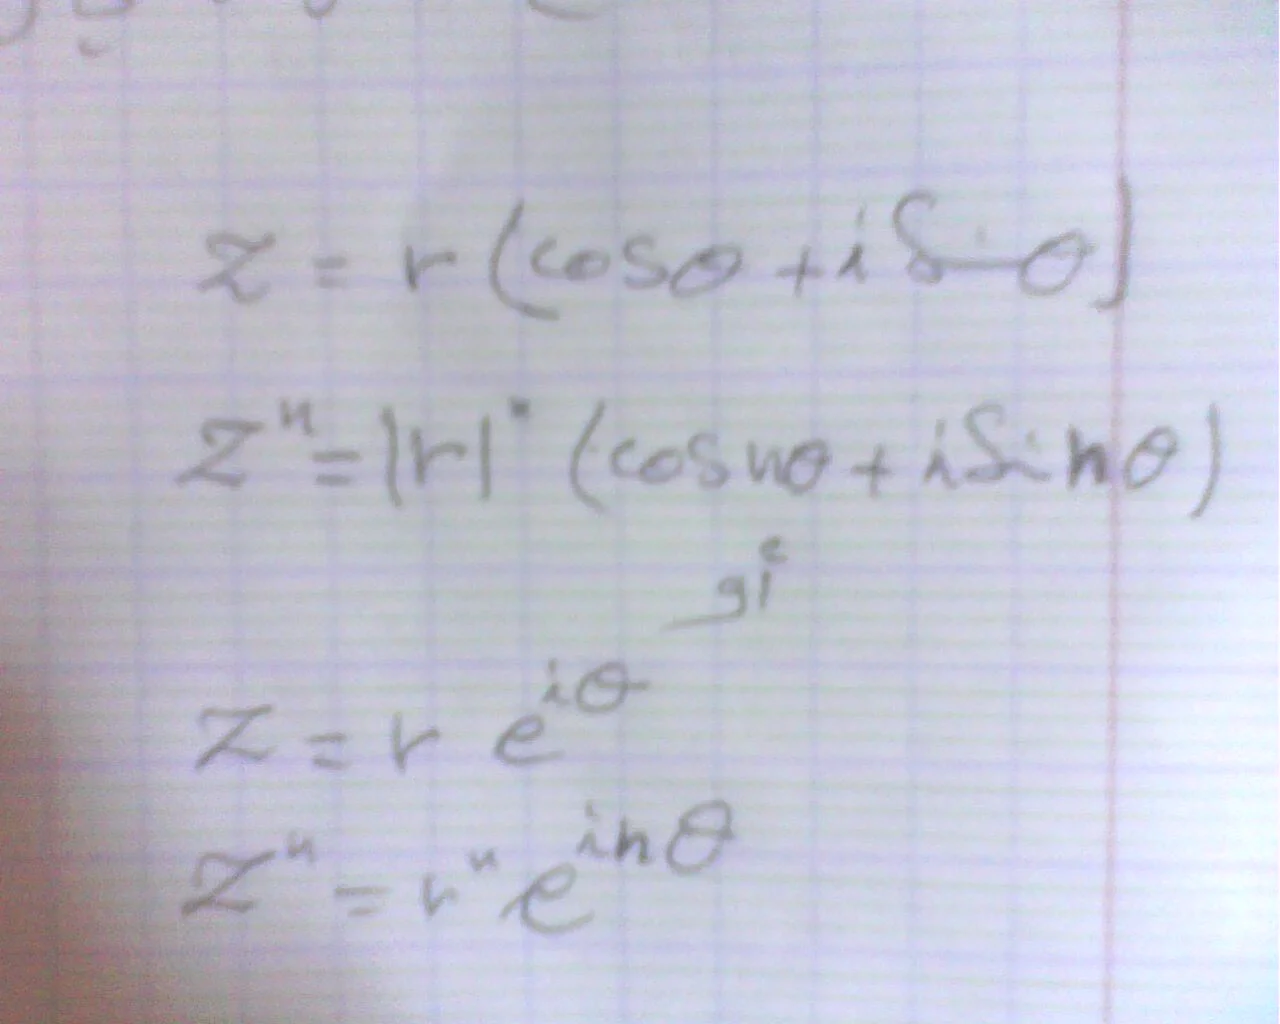 z = r (cosθ + i sin θ)
zⁿ = |r|ⁿ (cos nθ + i sin nθ)
z = r e^{iθ}
zⁿ = rⁿ e^{inθ}